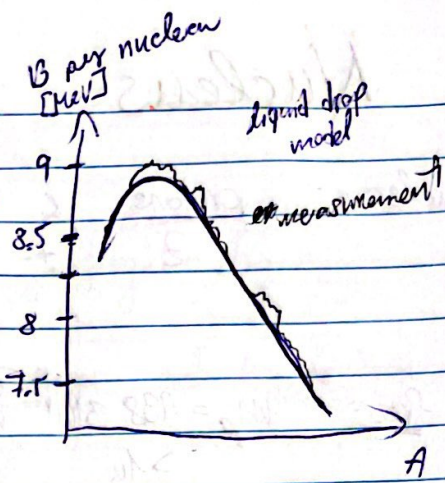 B per nucleon
[MeV]
liquid drop
model
measurement
9
8.5
8
7.5
A